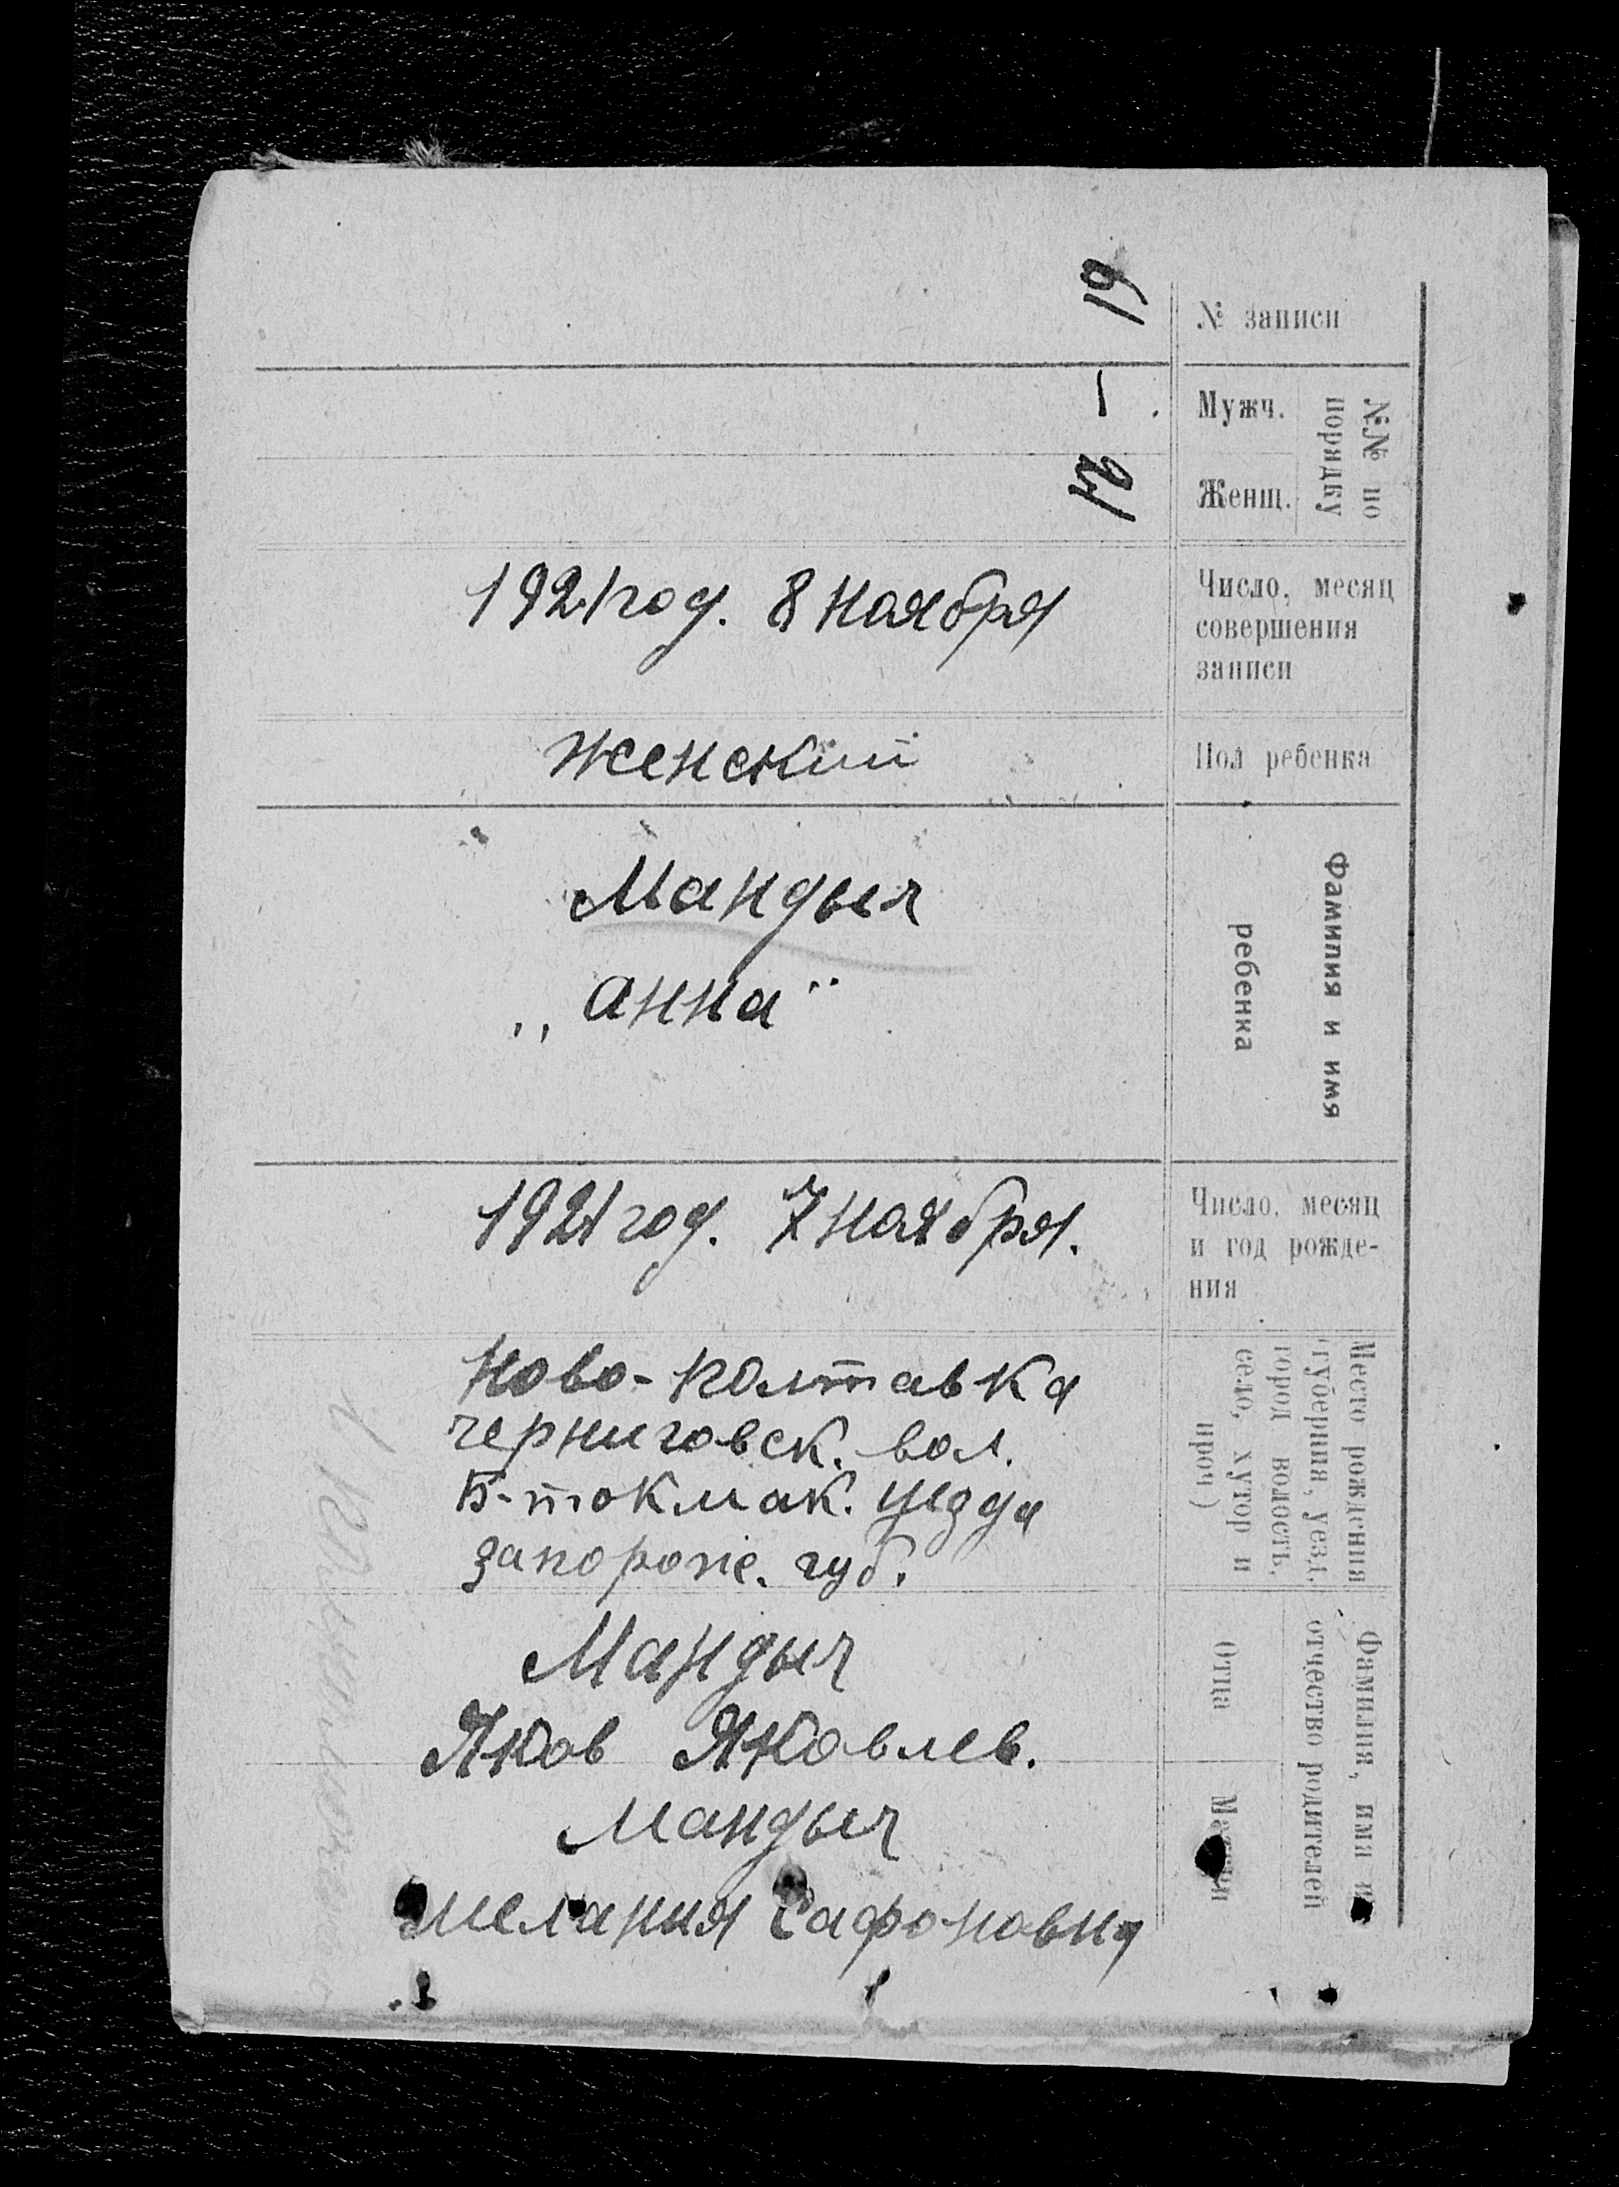 61
№ записи
—
Мужч.
№№ по
порядку
24
Женщ.
1921 год. 8 Ноября
Число, месяц
совершения
записи
Женский
Пол ребенка
Мандыч
„Анна"
Фамилия и имя
ребенка
1921 год. 7 Ноября.
Число, месяц
и год рожде-
ния
Ново-Полтавка
черниговск. вол.
Б-токмак. уезда
запорож. губ.
Место рождения
(губерния, уезд,
город волость,
село, хутор и
проч)
Мандыч
Яков Яковлев.
Отца
Фамилия, имя и
отчество родителей
Мандыч
Мелания Сафоновна
Матери